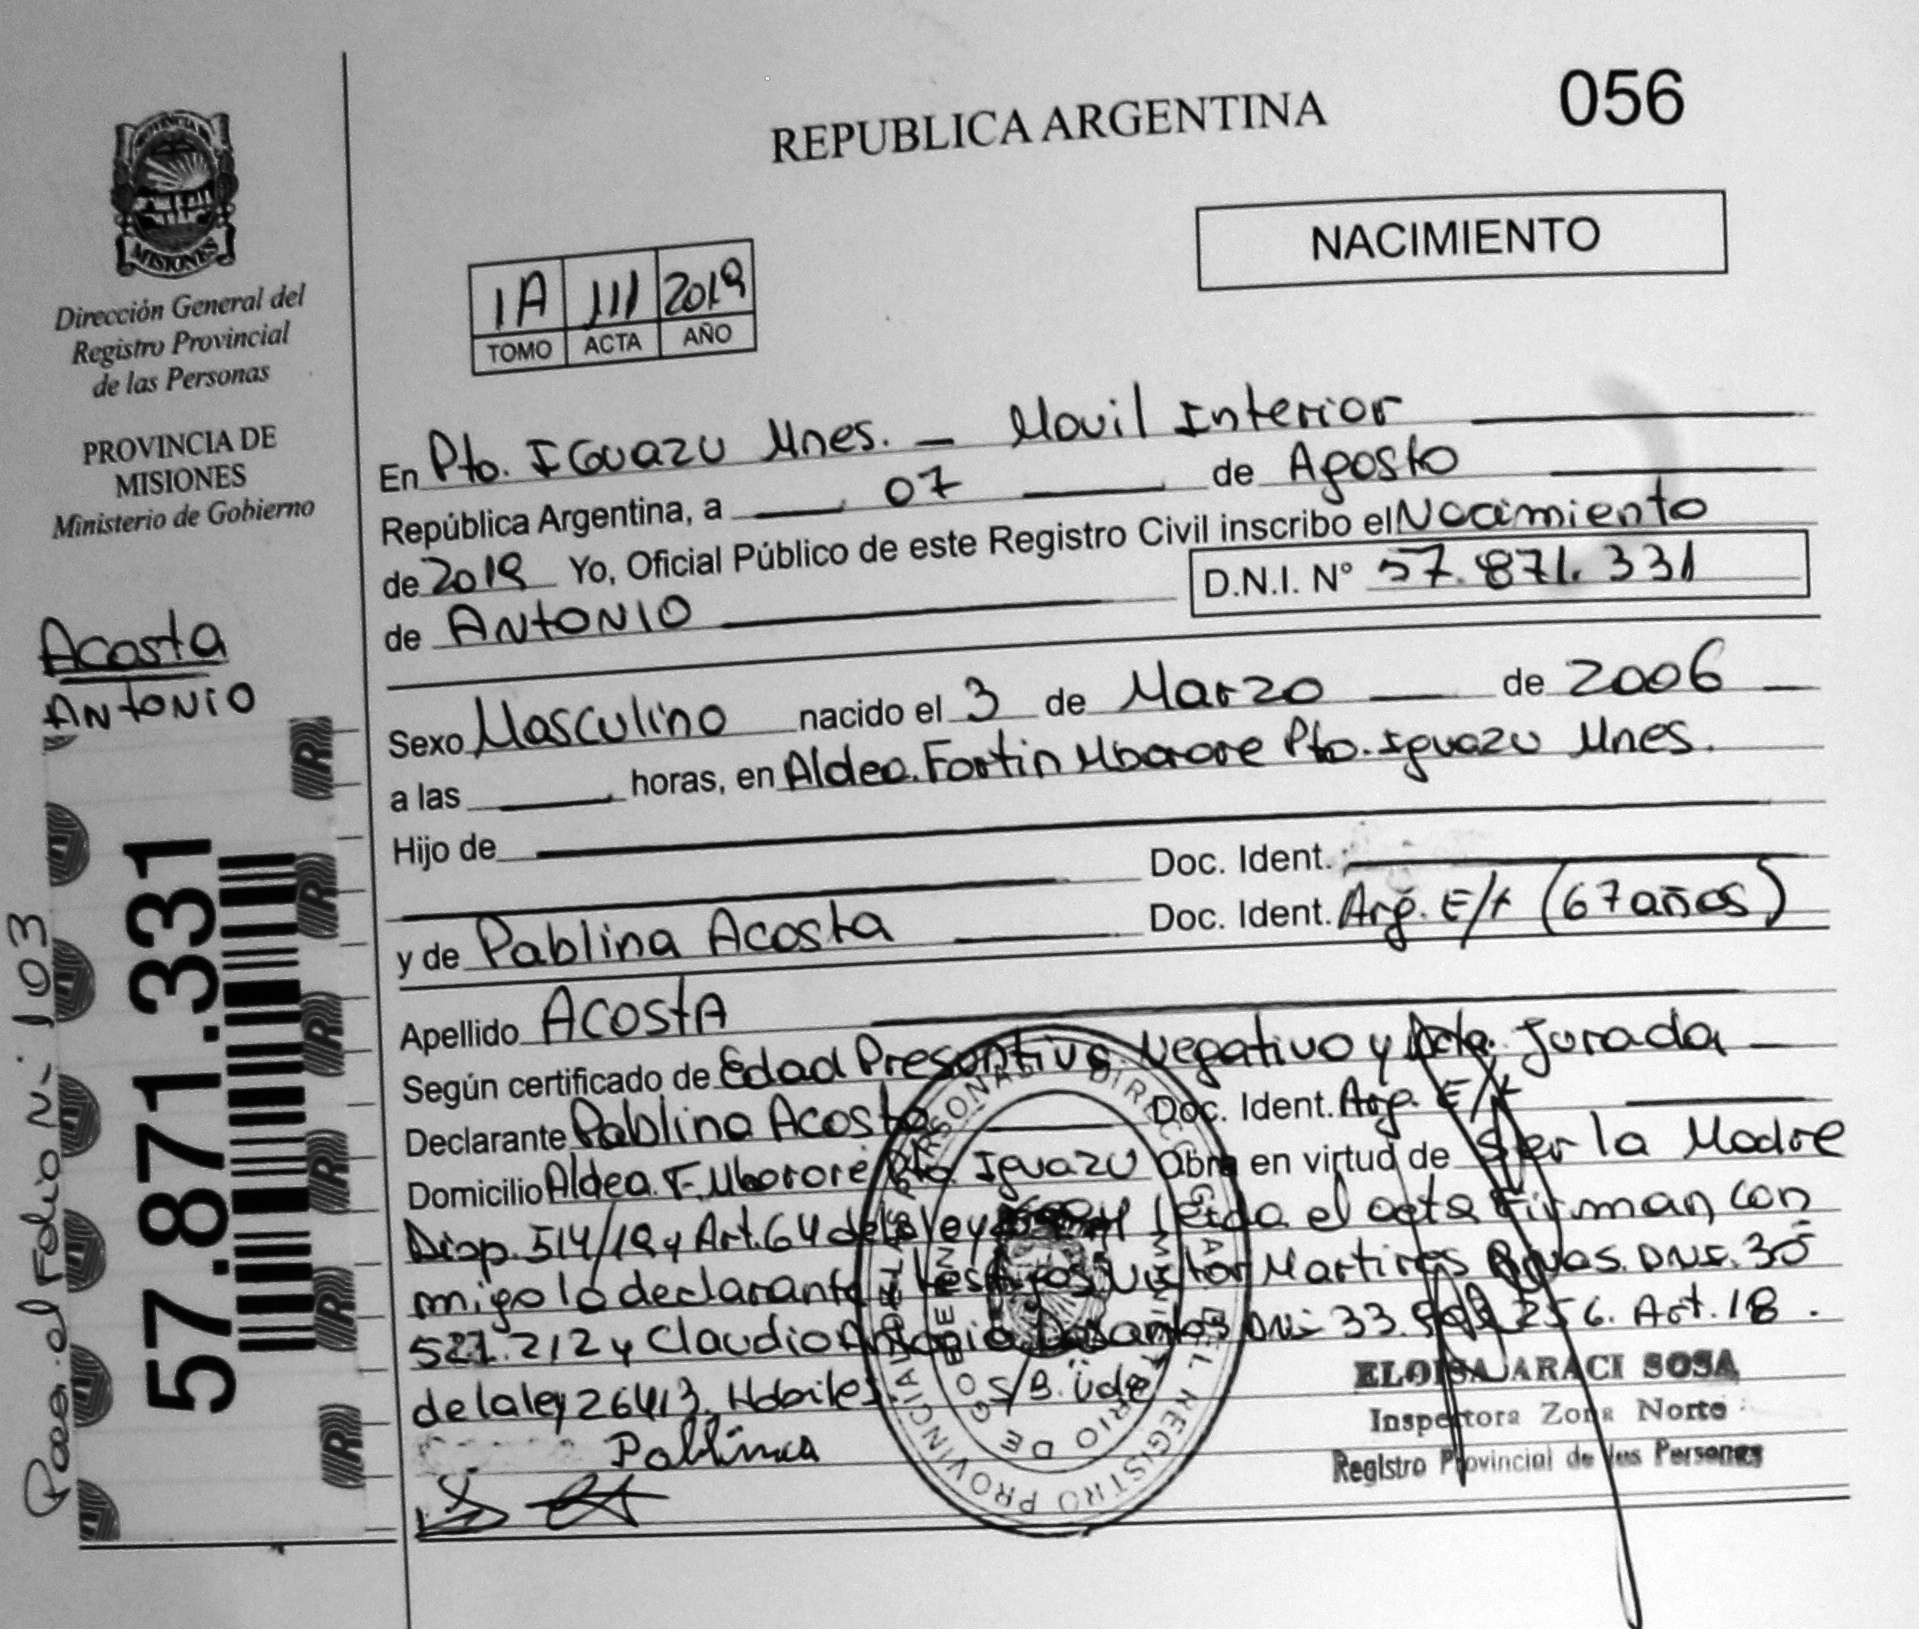 056
REPUBLICA ARGENTINA
NACIMIENTO
PROVINCIA DE
MISIONES
Dirección General del
Registro Provincial
de las Personas
PROVINCIA DE
MISIONES
Ministerio de Gobierno
Acosta
Antonio
57.871.331
Pasa al Folio N: 103
1A 111 2019
TOMO ACTA AÑO
En Pto. Iguazu Mnes. - Movil Interior
República Argentina, a 07 de Agosto
de 2019 Yo, Oficial Público de este Registro Civil inscribo el Nacimiento
D.N.I. N° 57.871.331
de ANTONIO
Sexo Masculino nacido el 3 de Marzo de 2006
a las horas, en Aldea Fortin Mborore Pto. Iguazu Mnes.
Hijo de
Doc. Ident.
y de Pablina Acosta Doc. Ident. Arg. E/t (67 años)
Apellido ACOSTA
Según certificado de Edad Presuntiva, Negativo y Acta Jurada
Declarante Pablina Acosta Doc. Ident. Arg. E/t
Domicilio Aldea F. Mbororé Pto Iguazu Obra en virtud de Ser la Madre
Disp. 514/19 y Art. 64 de la ley leida el acta Firman con
migo la declarante y testigos Victor Martires DNI. 35
521.212 y Claudio Antonio DNI 33. 256. Art. 18.
de la ley 26413. Hdoiles S/B. Vde
Pablina
ELOISA ARACI SOSA
Inspectora Zona Norte
Registro Provincial de las Personas
DIRECCION GENERAL DEL REGISTRO PROVINCIAL DE LAS PERSONAS
MINISTERIO DE GOBIERNO